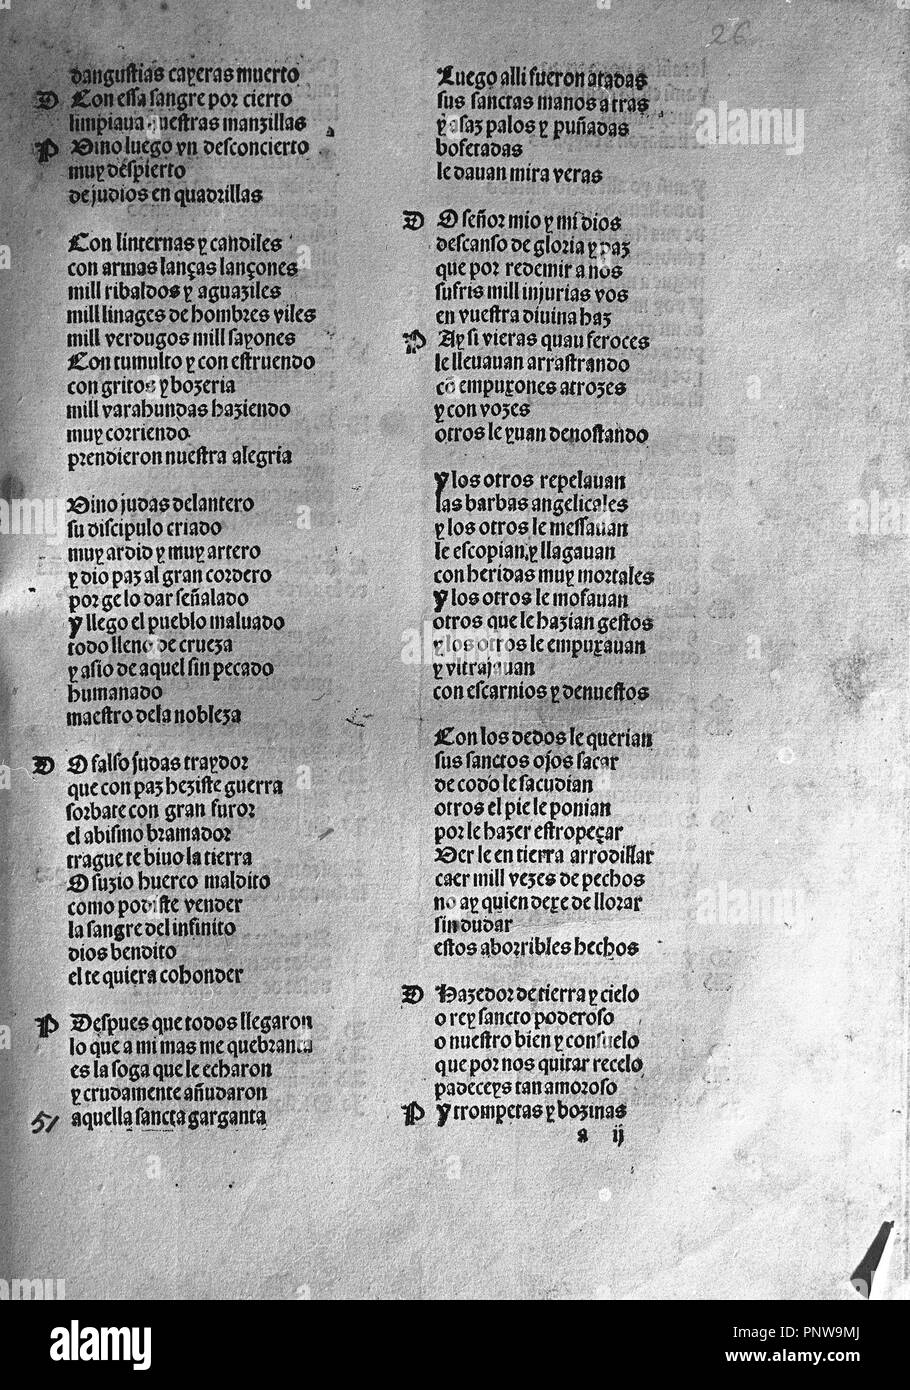 26
dangustias cayeras muerto
D Con essa sangre por cierto
limpiaua nuestras manzillas
P Uino luego vn desconcierto
muy despierto
de judios en quadrillas
Con linternas y candiles
con armas lanças lançones
mill ribaldos y aguaziles
mill linages de hombres viles
mill verdugos mill sayones
Con tumulto y con estruendo
con gritos y bozeria
mill varahundas haziendo
muy corriendo
prendieron nuestra alegria
Uino judas delantero
su discipulo criado
muy ardid y muy artero
y dio paz al gran cordero
por ge lo dar señalado
Y llego el pueblo maluado
todo lleno de crueza
y asio de aquel sin pecado
humanado
maestro dela nobleza
D O falso judas traydor
que con paz heziste guerra
sorbate con gran furor
el abismo bramador
trague te biuo la tierra
O suzio huerco maldito
como podiste vender
la sangre del infinito
dios bendito
el te quiera cohonder
P Despues que todos llegaron
lo que a mi mas me quebranta
es la soga que le echaron
y crudamente añudaron
51 aquella sancta garganta
Luego alli fueron atadas
sus sanctas manos a tras
y asaz palos y puñadas
bofetadas
le dauan mira veras
D O señor mio y mi dios
descanso de gloria y paz
que por redemir a nos
sufris mill injurias vos
en vuestra diuina haz
P Ay si vieras quau feroces
le lleuauan arrastrando
cõ empuxones atrozes
y con vozes
otros le yuan denostando
Y los otros repelauan
las barbas angelicales
y los otros le messauan
le escopian, y llagauan
con heridas muy mortales
Y los otros le mofauan
otros que le hazian gestos
y los otros le empuxauan
y vitrajauan
con escarnios y denuestos
Con los dedos le querian
sus sanctos ojos sacar
de codo le sacudian
otros el pie le ponian
por le hazer estropeçar
Uer le en tierra arrodillar
caer mill vezes de pechos
no ay quien dexe de llorar
sin dudar
estos aborribles hechos
D Hazedor de tierra y cielo
o rey sancto poderoso
o nuestro bien y consuelo
que por nos quitar recelo
padeceys tan amoroso
P Y trompetas y bozinas
a ij
alamy
Image ID: PNW9MJ
www.alamy.com